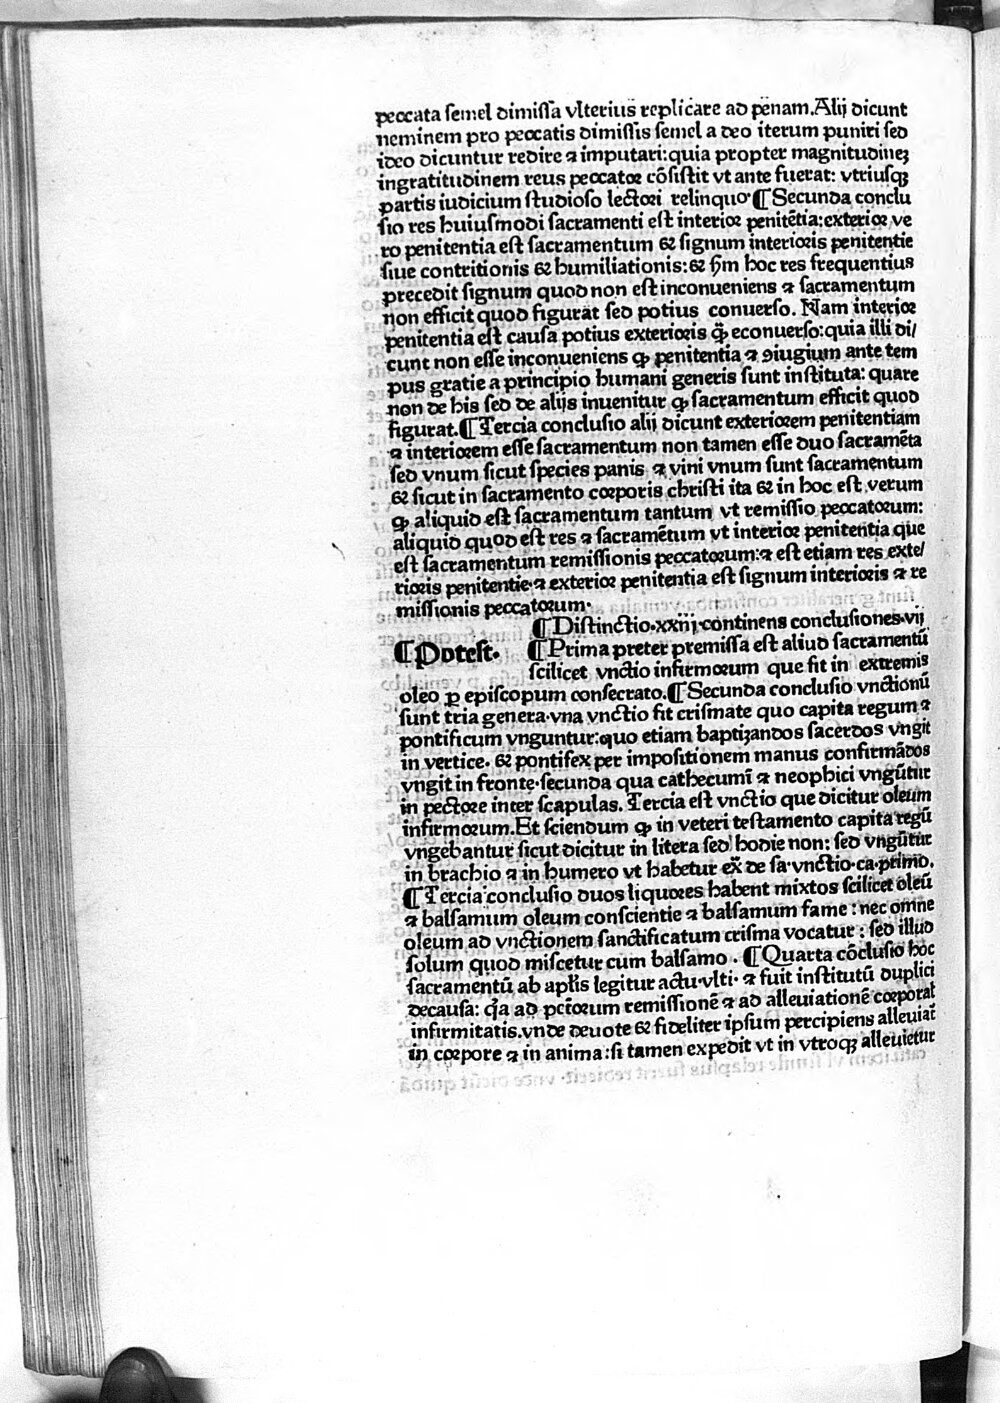 peccata semel dimissa vlterius replicare ad penam. Alij dicunt
neminem pro peccatis dimissis semel a deo iterum puniri sed
ideo dicuntur redire ⁊ imputari: quia propter magnitudineꝫ
ingratitudinem reus peccator cõsistit vt ante fuerat: vtriusqꝫ
partis iudicium studioso lectori relinquo· ¶ Secunda conclu
sio res huiusmodi sacramenti est interior penitẽtia: exterior ve
ro penitentia est sacramentum & signum interioris penitentie
siue contritionis & humiliationis: & ẜm hoc res frequentius
precedit signum quod non est inconueniens ⁊ sacramentum
non efficit quod figurat sed potius conuerso. Nam interior
penitentia est causa potius exterioris q̃ȝ econuerso: quia illi di/
cunt non esse inconueniens ꝙ penitentia ⁊ ꝯiugium ante tem
pus gratie a principio humani generis sunt instituta: quare
non de his sed de alijs inuenitur ꝙ sacramentum efficit quod
figurat. ¶ Tercia conclusio alij dicunt exteriorem penitentiam
⁊ interiorem esse sacramentum non tamen esse duo sacramẽta
sed vnum sicut species panis ⁊ vini vnum sunt sacramentum
& sicut in sacramento corporis christi ita & in hoc est verum
ꝙ aliquid est sacramentum tantum vt remissio peccatorum:
aliquid quod est res ⁊ sacramẽtum vt interior penitentia que
est sacramentum remissionis peccatorum: ⁊ est etiam res exte/
rioris penitentie· ⁊ exterior penitentia est signum interioris ⁊ re
missionis peccatorum·
¶ Distinctio· xxiij· continens conclusiones· vij
¶ Potest· ¶ Prima preter premissa est aliud sacramentũ
scilicet vnctio infirmorum que fit in extremis
oleo ꝑ episcopum consecrato. ¶ Secunda conclusio vnctionũ
sunt tria genera· vna vnctio fit crismate quo capita regum ⁊
pontificum vnguntur: quo etiam baptizandos sacerdos vngit
in vertice· & pontifex per impositionem manus confirmãdos
vngit in fronte· secunda qua cathecumĩ ⁊ neophici vngũtur
in pectore inter scapulas. Tercia est vnctio que dicitur oleum
infirmorum. Et sciendum ꝙ in veteri testamento capita regũ
vngebantur sicut dicitur in litera sed hodie non: sed vngũtur
in brachio ⁊ in humero vt habetur ex̃ de sa· vnctio· ca· primo.
¶ Tercia conclusio duos liquores habent mixtos scilicet oleũ
⁊ balsamum oleum conscientie ⁊ balsamum fame: nec omne
oleum ad vnctionem sanctificatum crisma vocatur: sed illud
solum quod miscetur cum balsamo. ¶ Quarta cõclusio hoc
sacramentũ ab aplis legitur actu· vlti· ⁊ fuit institutũ duplici
decausa: q̃a ad pctorum remissionẽ ⁊ ad alleuiationẽ corporal
infirmitatis. vnde deuote & fideliter ipsum percipiens alleuiat̃
in corpore ⁊ in anima: si tamen expedit vt in vtroqꝫ alleuietur